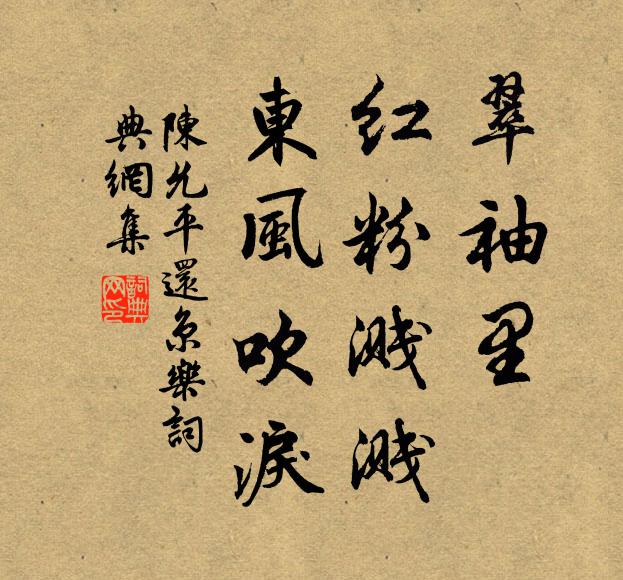 翠袖里
红粉溅溅
東風吹淚
陳允平還京樂詞
典網集
詞典网印